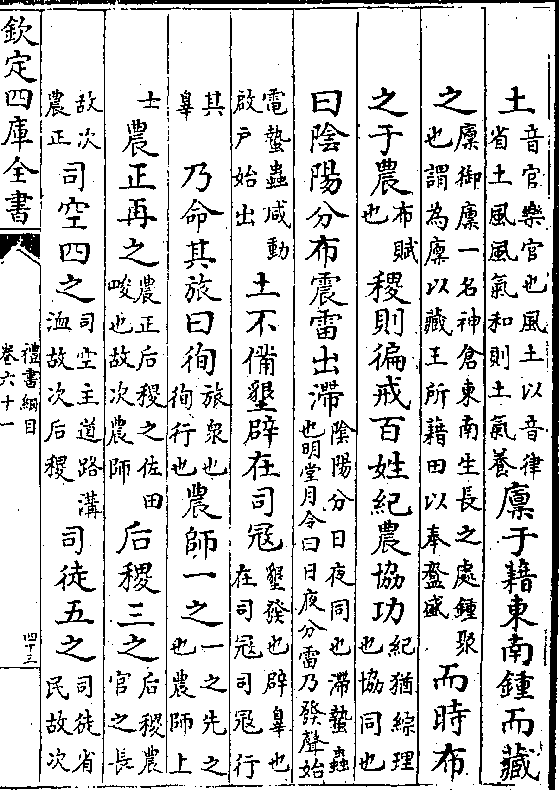 土音官樂官也風土以音律省土風風氣和則土氣養廪于藉東南鍾而藏
之廪御廪一名神倉東南生長之處鍾聚也謂為廪以藏王所藉田以奉粢盛而時布
之于農布賦也稷則徧戒百姓紀農協功紀猶綜理也協同也
曰陰陽分布震雷出滯陰陽分日夜同也滯蟄蟲也明堂月令曰日夜分雷乃發聲始
電蟄蟲咸動啟户始出土不備墾辟在司冦墾發也辟辠也在司冦司冦行
其辠乃命其旅曰徇旅衆也徇行也農師一之一之先之也農師上
士農正再之農正后稷之佐田畯也故次農師后稷三之后稷農官之長
故次農正司空四之司空主道路溝洫故次后稷司徒五之司徒省民故次
欽定四庫全書
禮書綱目
卷六十一
四十三